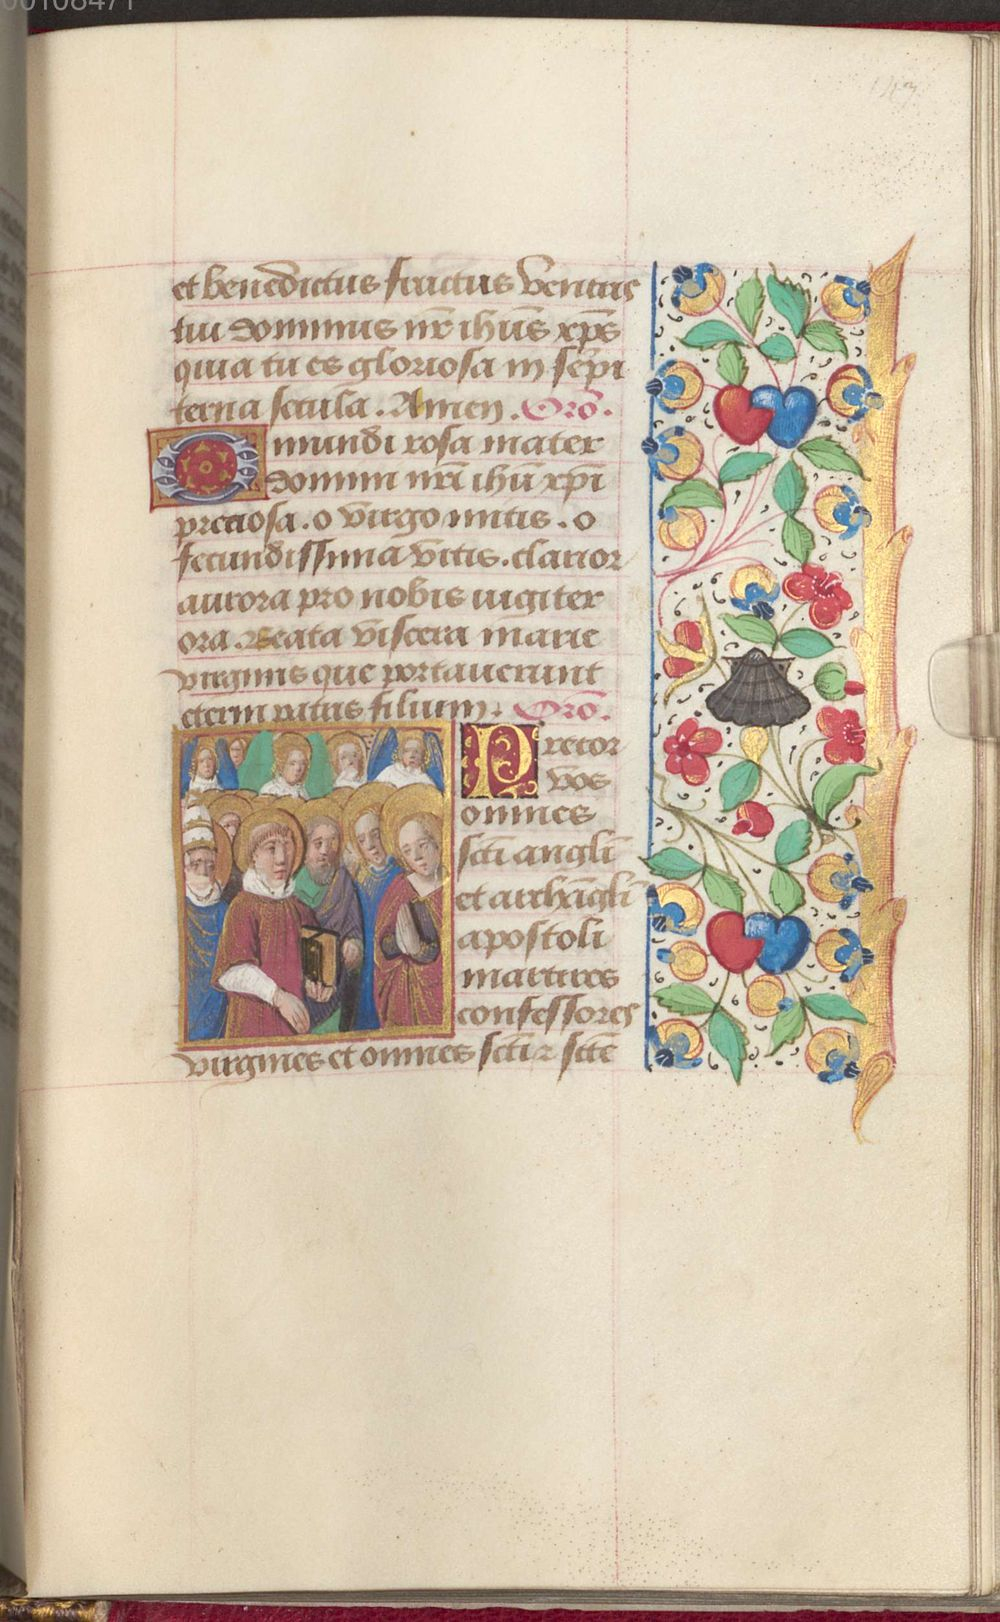 00108471
et benedictus fructus ventris
tui dominus nr̄ ihūs xp̄s
quia tu es gloriosa in sēpi
terna secula. Amen. Orō.
O mundi rosa mater
domini nr̄i ihū xp̄i
preciosa. o virgo mitis. o
fecundissima vitis. clarior
aurora pro nobis iugiter
ora. Beata viscera marie
virginis que portauerunt
eterni patris filium. Orō.
Precor
vos
omnes
sc̄ti angl̄i
et archāgl̄i
apostoli
martires
confessores
virgines et omnes sc̄ti ⁊ sc̄te